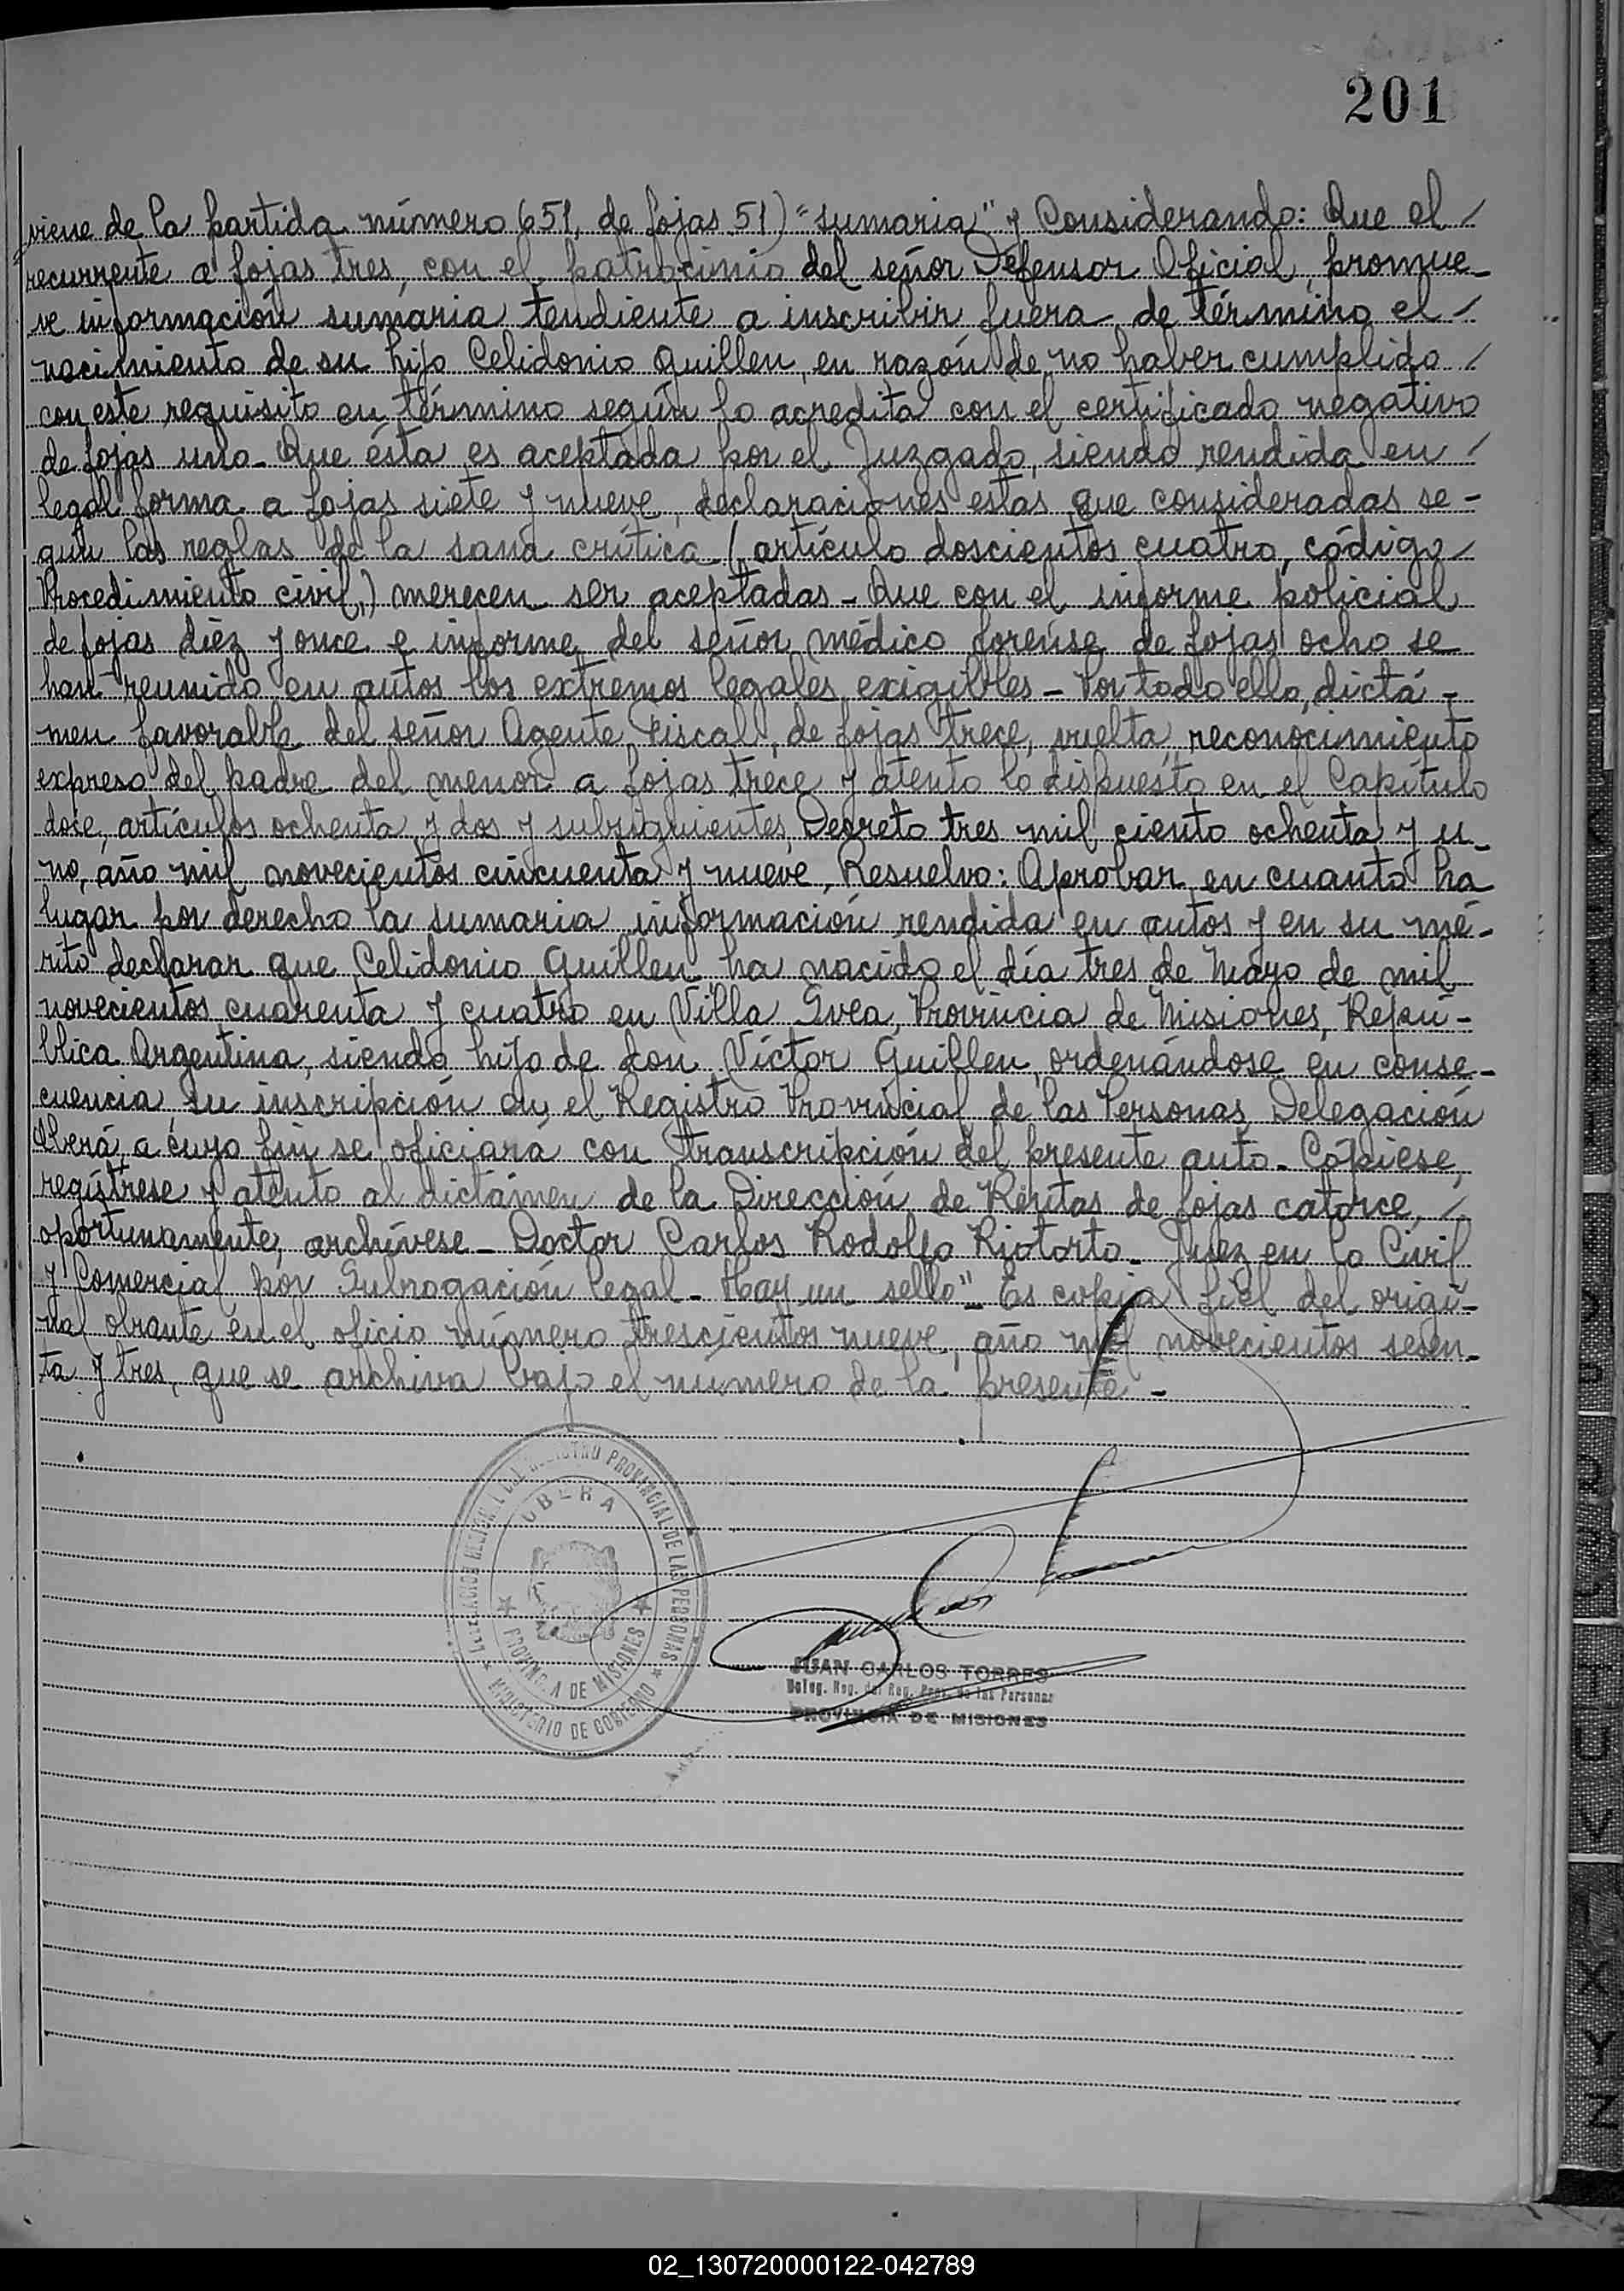 201
viene de la partida número 651, de fojas 51) "sumaria" y Considerando: Que el /
recurrente a fojas tres, con el patrocinio del señor Defensor Oficial, promue-
ve información sumaria tendiente a inscribir fuera de término el /
nacimiento de su hijo Celidonio Guillen, en razón de no haber cumplido /
con este requisito en término según lo acredita con el certificado negativo
de fojas uno - Que ésta es aceptada por el Juzgado, siendo rendida en /
legal forma a fojas siete y nueve, declaraciones estas que consideradas se-
gún las reglas de la sana crítica (artículo doscientos cuatro, código /
Procedimiento civil,) merecen ser aceptadas - Que con el informe policial
de fojas diez y once e informe del señor médico forense de fojas ocho se
han reunido en autos los extremos legales exigibles - Por todo ello, dictá-
men favorable del señor Agente Fiscal, de fojas trece, vuelta, reconocimiento
expreso del padre del menor a fojas trece y atento lo dispuesto en el Capítulo
doce, artículos ochenta y dos y subsiguientes, Decreto tres mil ciento ochenta y u-
no, año mil novecientos cincuenta y nueve, Resuelvo: Aprobar en cuanto ha
lugar por derecho la sumaria información rendida en autos y en su mé-
rito declarar que Celidonio Guillen ha nacido el día tres de Mayo de mil
novecientos cuarenta y cuatro en Villa Svea, Provincia de Misiones, Repú-
blica Argentina, siendo hijo de don Víctor Guillen, ordenándose en conse-
cuencia su inscripción en el Registro Provincial de las Personas, Delegación
Oberá, a cuyo fin se oficiará con transcripción del presente auto - Cópiese,
regístrese y atento al dictámen de la Dirección de Rentas de fojas catorce, /
oportunamente, archívese - Doctor Carlos Rodolfo Riotorto - Juez en lo Civil
y Comercial por Subrogación legal - Hay un sello" - Es copia fiel del origi-
nal obrante en el oficio número trescientos nueve, año mil novecientos sesen-
ta y tres, que se archiva bajo el número de la presente -
REGISTRO PROVINCIAL DE LAS PERSONAS
OBERA
PROVINCIA DE MISIONES
MINISTERIO DE GOBIERNO
JUAN CARLOS TORRES
Deleg. Reg. del Reg. Prov. de las Personas
PROVINCIA DE MISIONES
T
U
V
X
Y
Z
02_130720000122-042789